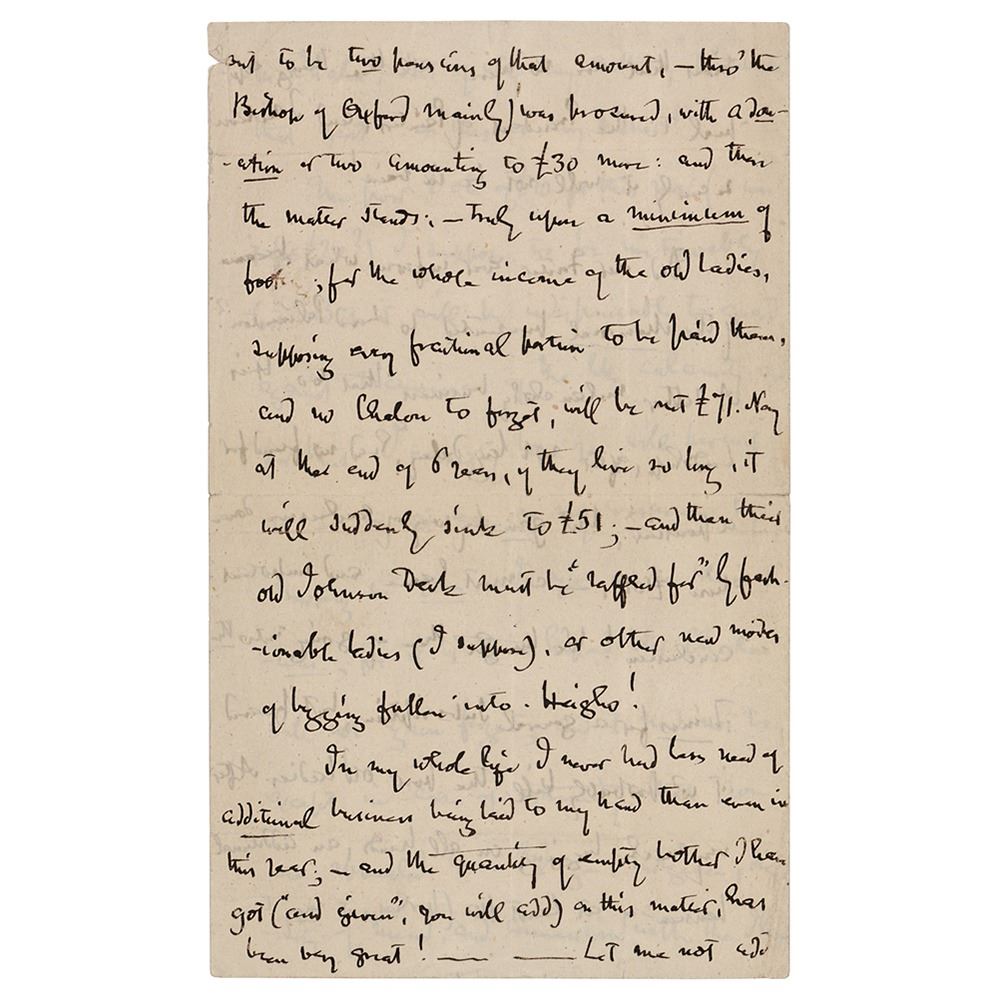 out to be two pensions of that amount, — thro' the
Bishop of Oxford mainly) was procured, with a don-
-ation or two amounting to £30 more: and there
the matter stands; — truly upon a minimum of
; for the whole income of the old ladies,
supposing every fractional portion to be paid them,
and no Chalon to forget, will be not £71. Nay
at the end of 6 years, if they live so long, it
will suddenly sink to £51; — and then their
old Johnson Desk must be "raffled for" by fash-
-ionable ladies (I suppose), or other new modes
of begging fallen into. Heigho!
In my whole life I never had less need of
additional business being laid to my hand than even in
this year; — and the quantity of empty bother I have
got ("and given", you will add) on this matter, has
been very great! — — Let me not add